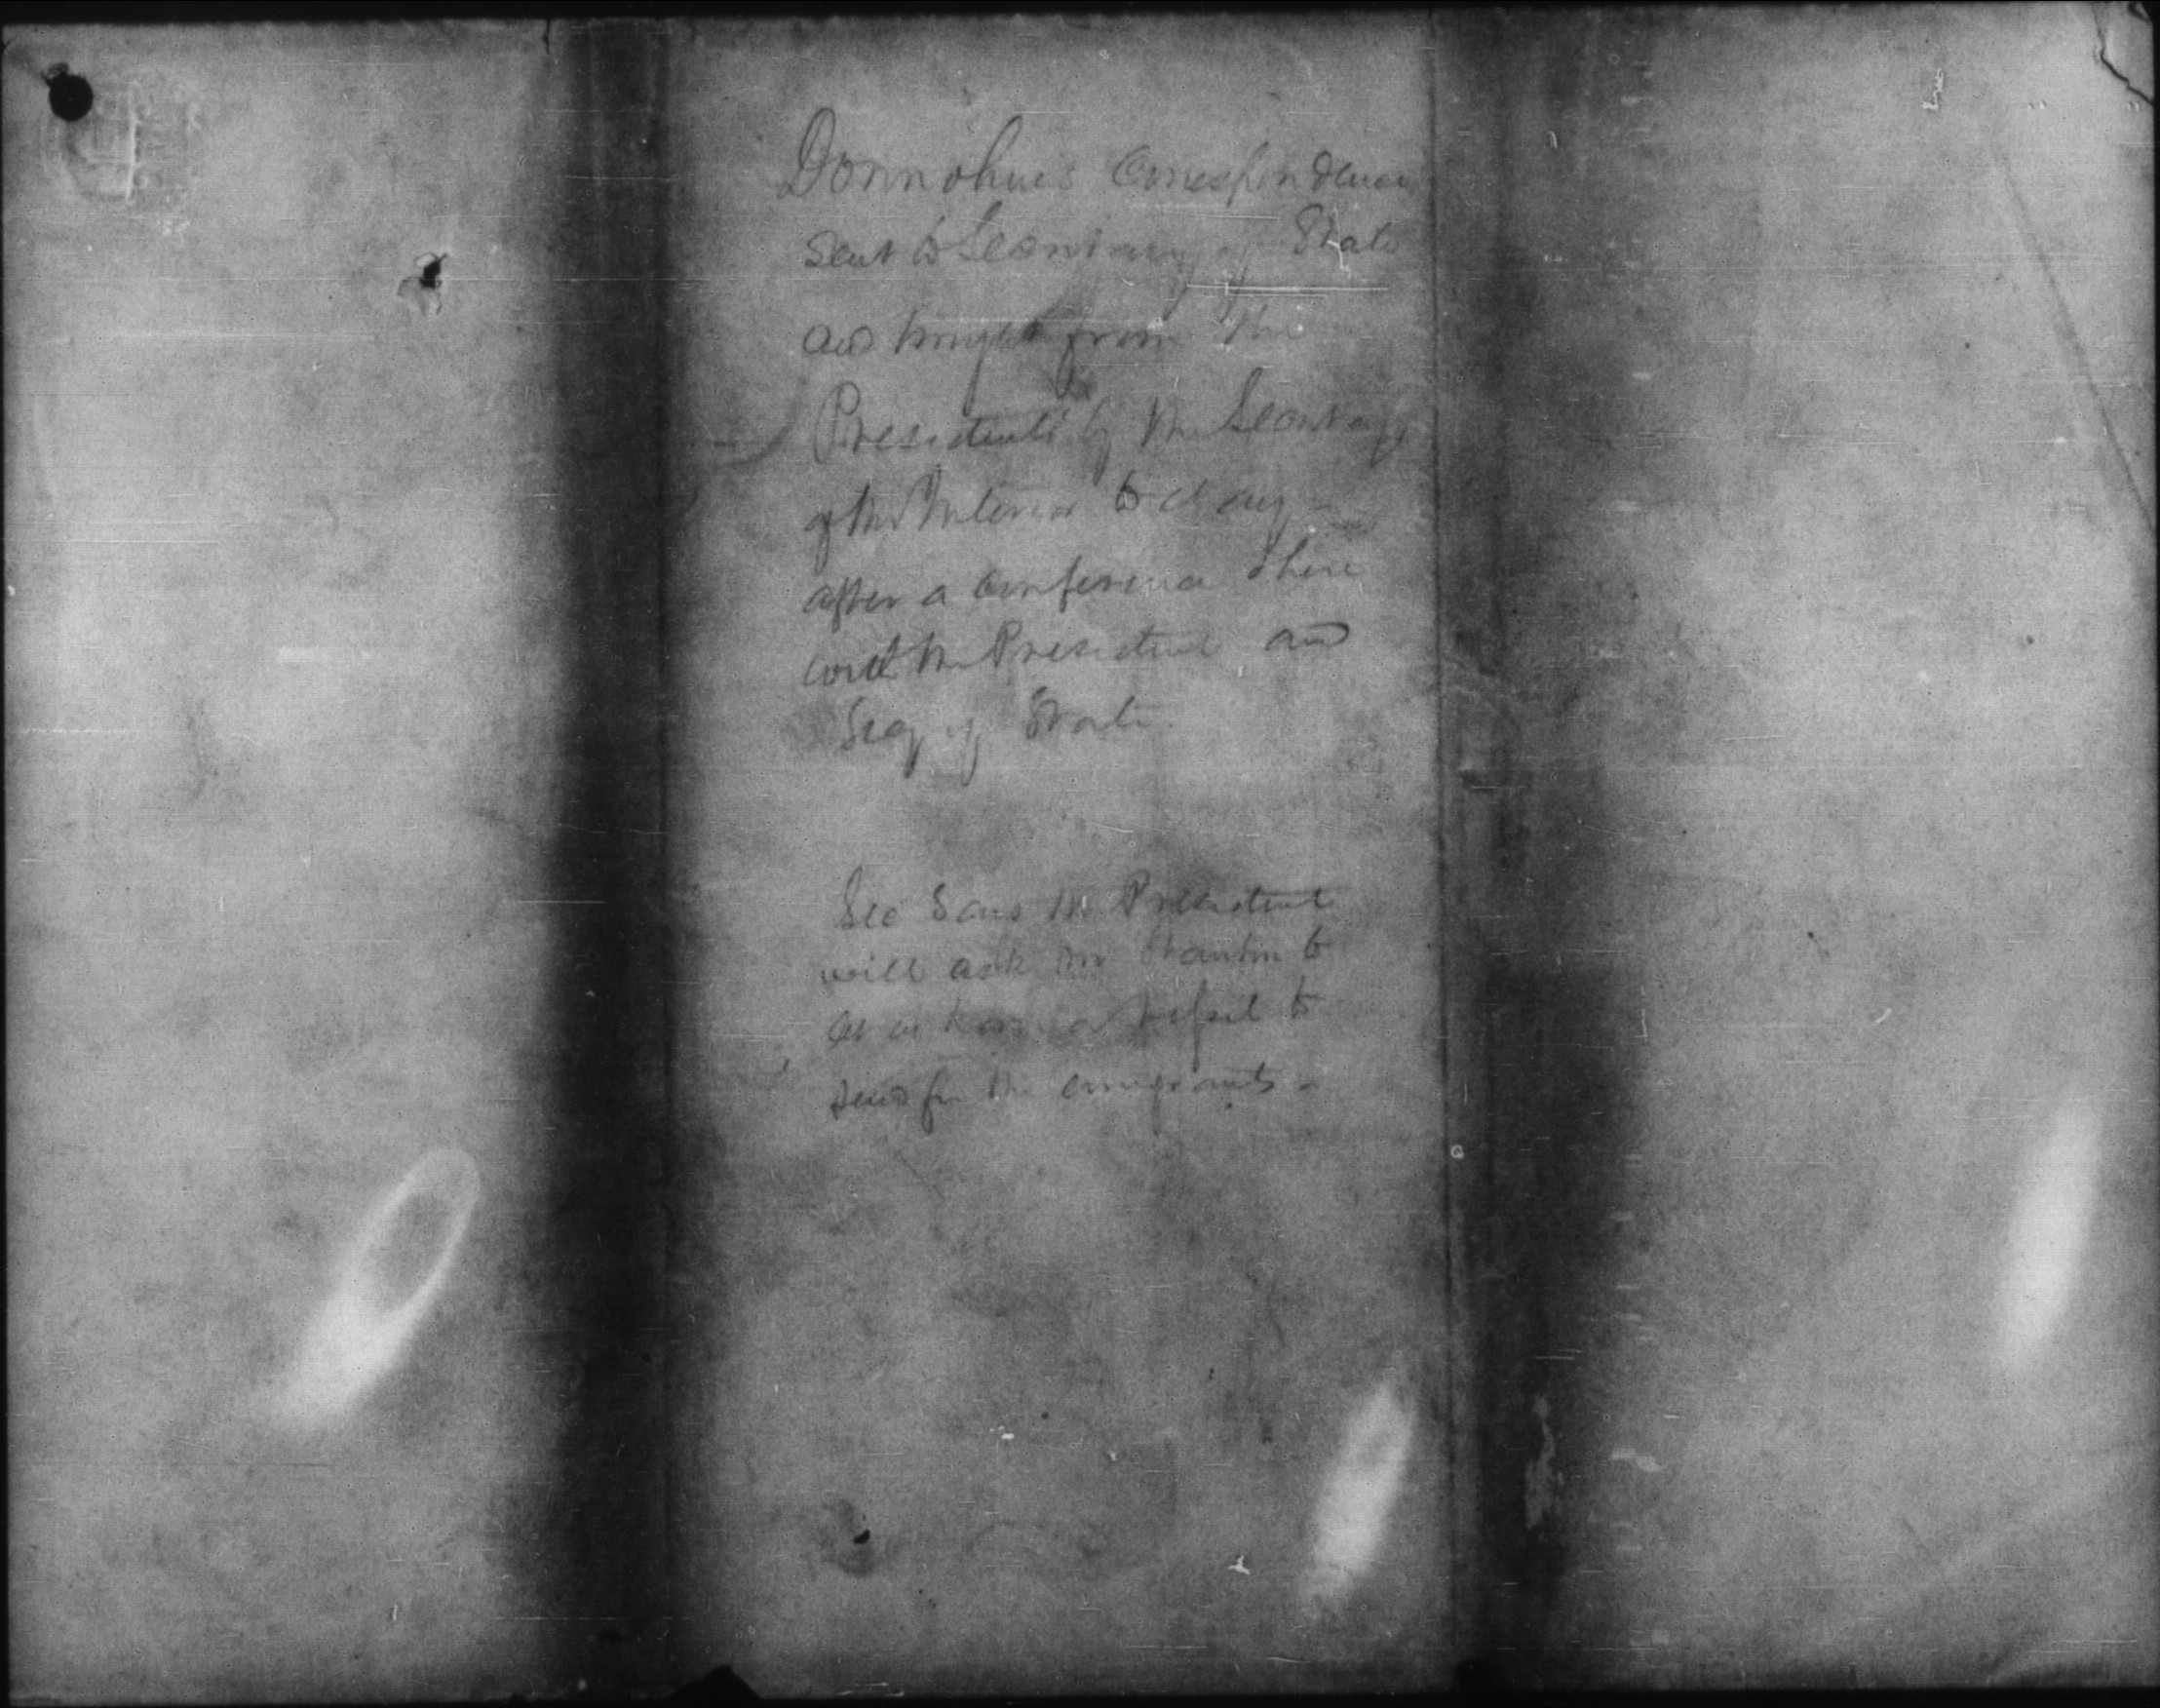 Donnohue's Correspondence
Sent to Secretary of State
and brought from the
Presidents by the Secretary
of the Interior to day -
after a conference there
with the President and
Secy of State.
Sec Says the President
will ask Mr Stanton to
a vessel to
send for the emigrants -